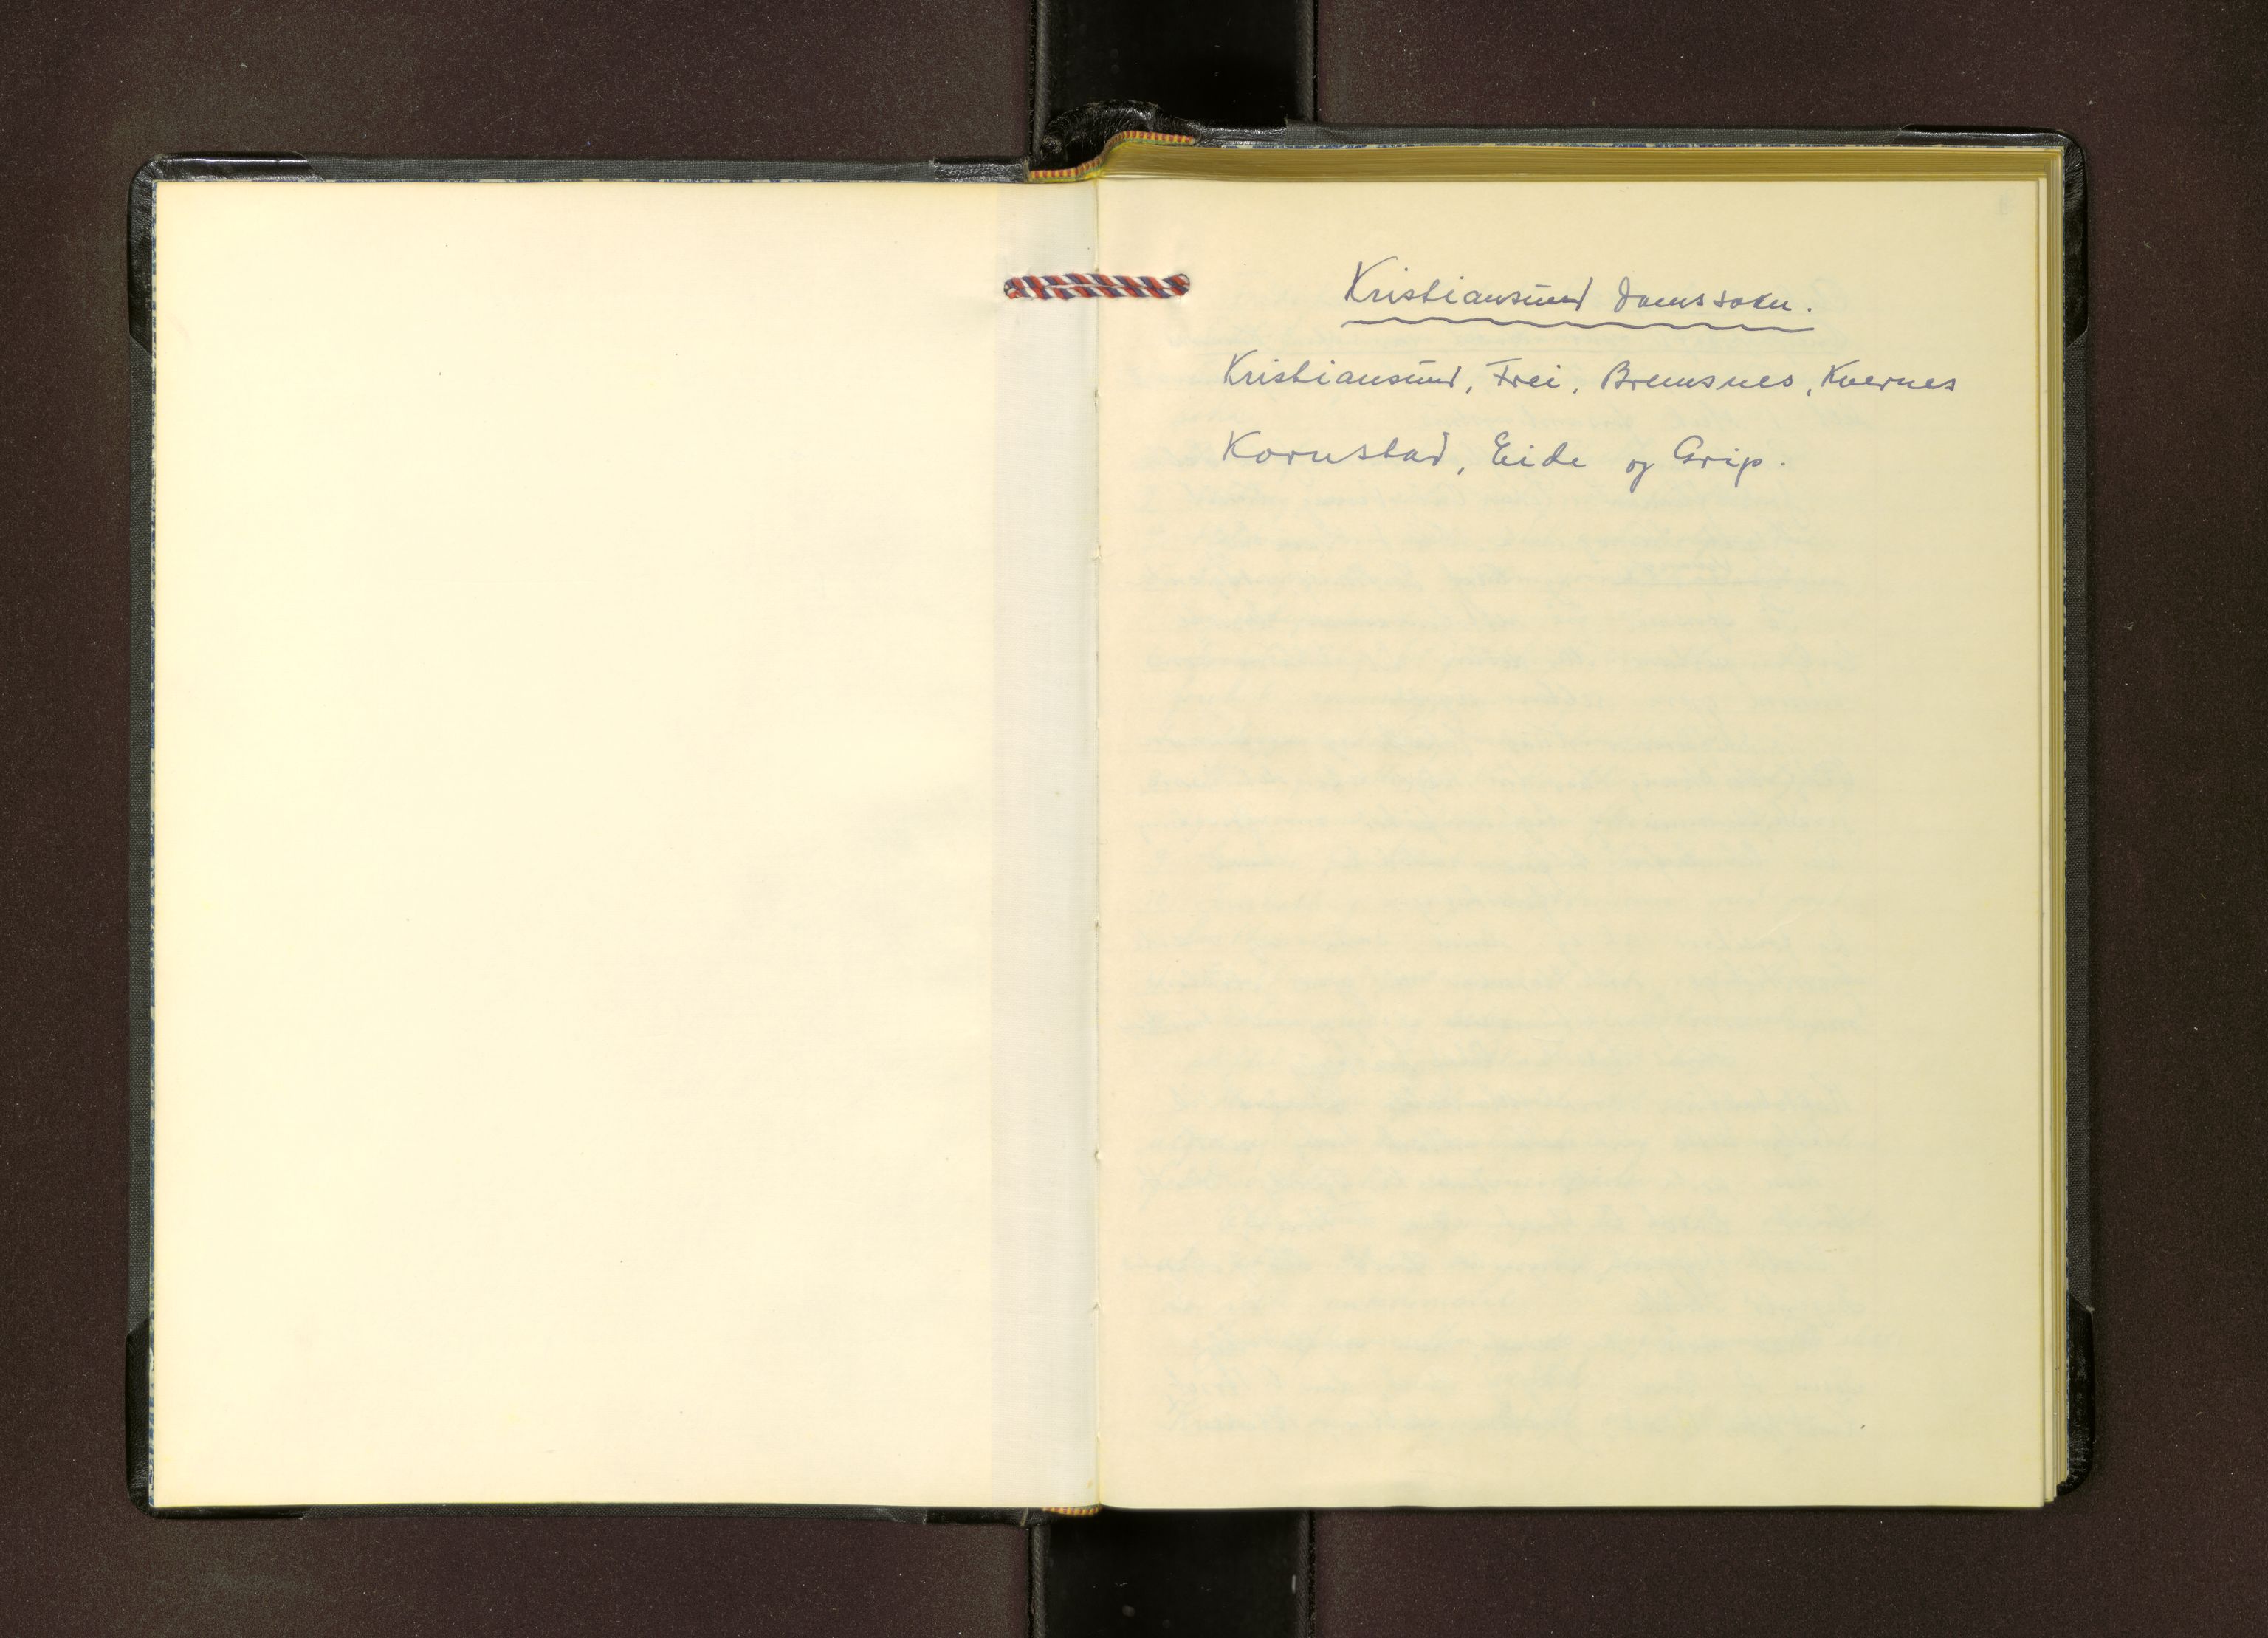 Kristiansund domssokn.
Kristiansund, Frei, Bremsnes, Kvernes
Kornstad, Eide og Grip.